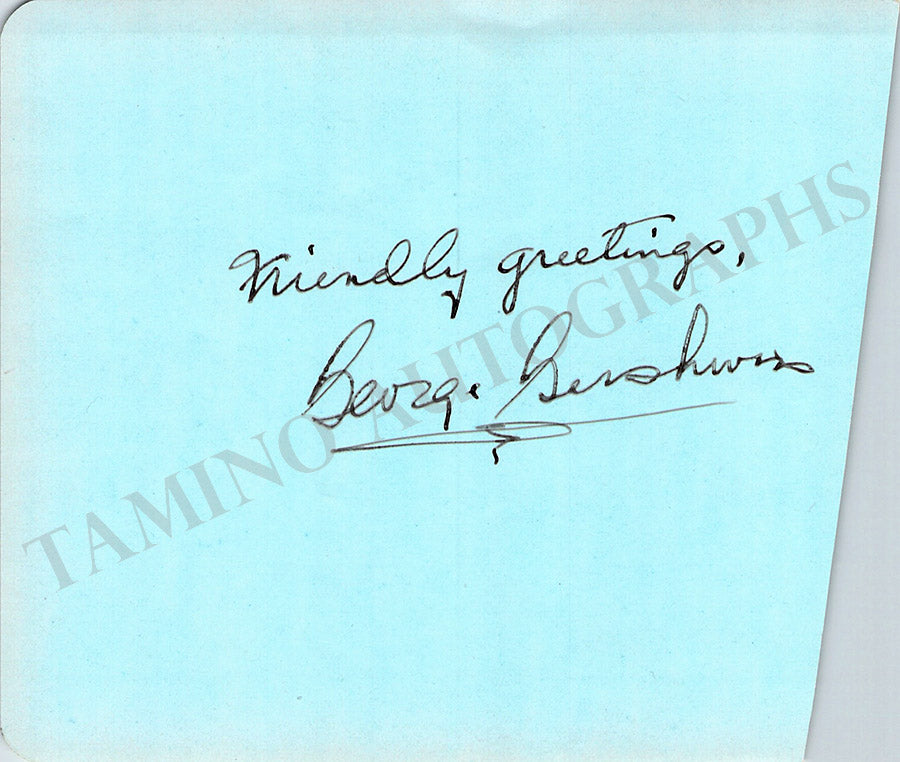 Friendly greetings,
George Gershwin
TAMINO AUTOGRAPHS